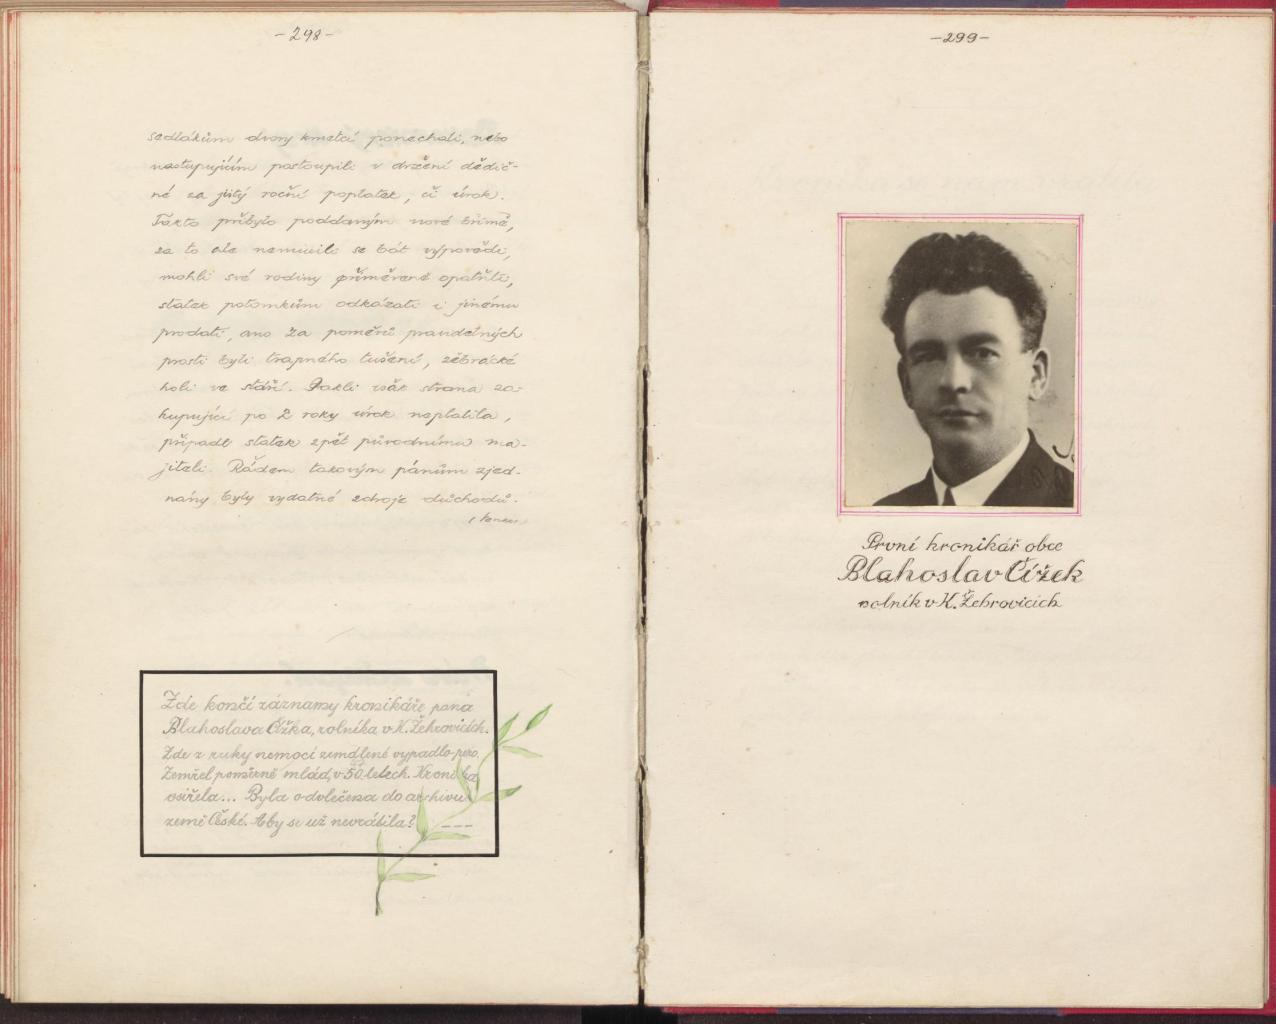 -298-
sedlákům dvory kmetcí ponechali, nebo
nastupujícím postoupili v držení dědič-
né za jistý roční poplatek, či úrok.
Takto přibylo poddaným nové břímě,
za to ale nemusili se bát výpovědi,
mohli své rodiny přiměřeně opatřiti,
statek potomkům odkázati i jinému
prodati, ano za poměrů pravidelných
prosti byli trapného tušení, žebrácké
holi ve stáří. Pakli však strana za-
kupující po 2 roky úrok neplatila,
připadl statek zpět původnímu ma-
jiteli. Řádem takovým pánům zjed-
nány byly vydatné zdroje důchodů.
Zde končí záznamy kronikáře pana
Blahoslava Čížka, rolníka v K. Žehrovicích.
Zde z ruky nemocí zemdlené vypadlo pero.
Zemřel poměrně mlád, v 50 letech. Kronika
osiřela... Byla odvlečena do archivu
země České. Aby se už nevrátila? ---
-299-
První kronikář obce
Blahoslav Čížek
rolník v K. Žehrovicích